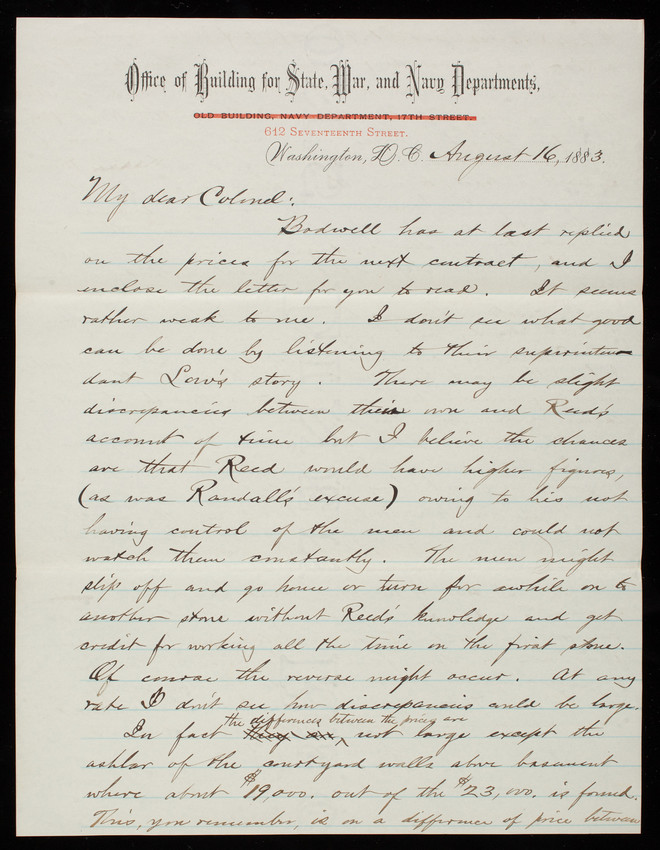 Office of Building for State, War, and Navy Departments,
OLD BUILDING, NAVY DEPARTMENT, 17TH STREET.
612 SEVENTEENTH STREET.
Washington, D.C. August 16, 1883.
My dear Colonel:
Bodwell has at last replied
on the prices for the next contract, and I
enclose the letter for you to read. It seems
rather weak to me. I don't see what good
can be done by listening to their superinten-
dant Low's story. There may be slight
discrepancies between their own and Reed's
account of time but I believe the chances
are that Reed would have higher figures,
(as was Randall's excuse) owing to his not
having control of the men and could not
watch them constantly. The men might
slip off and go home or turn for awhile on to
another stone without Reed's knowledge and get
credit for working all the time on the first stone.
Of course the reverse might occur. At any
rate I don't see how discrepancies could be large.
the differences between the prices are
In fact they are, not large except the
ashlar of the courtyard walls above basement
where about $19,000. out of the $23,000. is found.
This, you remember, is on a difference of price between